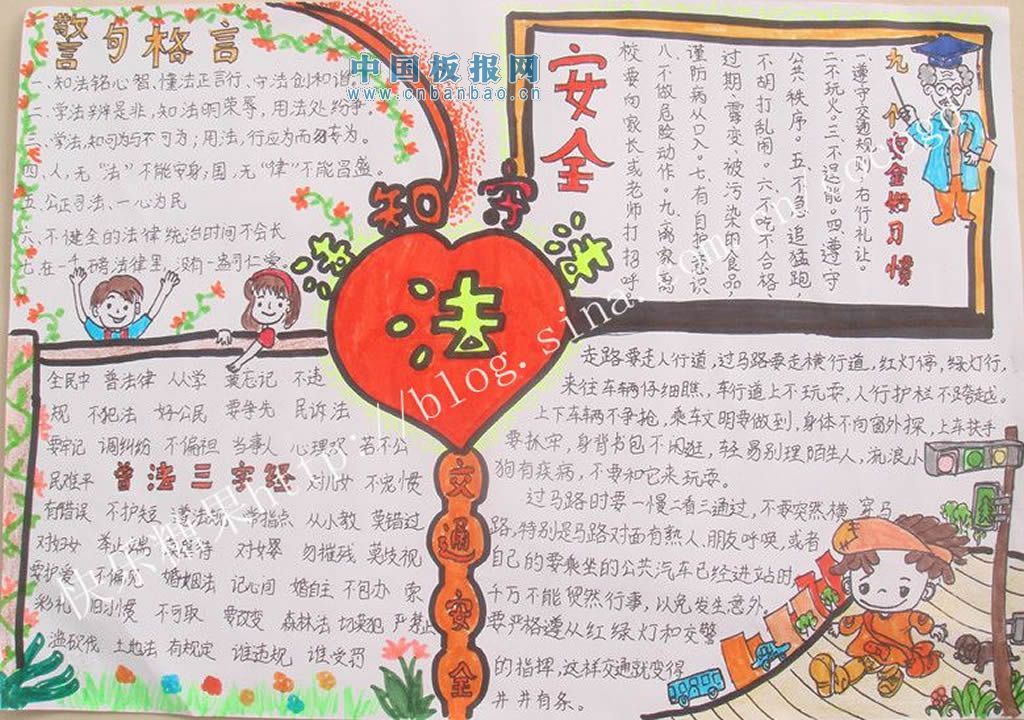 警句格言
一、知法铭心智、懂法正言行、守法创和谐
二、学法辨是非,知法明荣辱,用法处纷争。
三、学法,知可为与不可为;用法,行应为而勿妄为。
四、人,无“法”不能安身;国,无“律”不能昌盛。
五、公正司法、一心为民
六、不健全的法律统治时间不会长
七、在一千磅法律里,没有一盎司仁爱
中国板报网
www.cnbanbao.cn
安全
九个安全好习惯
一遵守交通规则,右行礼让。
二不玩火。三不逞能。四、遵守
公共秩序。五不急追猛跑,
不胡打乱闹。六、不吃不合格、
过期、霉变、被污染的食品,
谨防病从口入。七有自护意识
八、不做危险动作。九、离家离
校要向家长或老师打招呼
知
守
法
全民中 普法律 从人学 莫忘记 不违
规 不犯法 好公民 要争先 民诉法
要牢记 调纠纷 不偏袒 当事人 心理邓 若不公
民难平 普法三字经 对儿女 不宠惯
有错误 不护短 遵法
指点 从小教 莫错过
对妇女 待 对女婴 勿摧残 莫歧视
要护爱 不偏见 婚姻法 记心间 婚自主 不包办 索
彩礼 旧习惯 不可取 要改变 森林法 切莫犯 严禁止
滥砍伐 土地法 有规定 谁违规 谁受罚
交通安全
走路要走人行道,过马路要走横行道,红灯停,绿灯行,
来往车辆仔细瞧,车行道上不玩耍,人行护栏不跨越。
上下车辆不争抢,乘车文明要做到,身体不向窗外探,上车扶手
要抓牢,身背书包不闲逛,轻易别理陌生人,流浪小
狗有疾病,不要和它来玩耍。
过马路时要一慢二看三通过,不要突然横穿马
路,特别是马路对面有熟人、朋友呼唤,或者
自己的要乘坐的公共汽车已经进站时,
千万不能贸然行事,以免发生意外。
要严格遵从红绿灯和交警
的指挥,这样交通就变得
井井有条。
快乐糖果http://blog.sina.com.cn